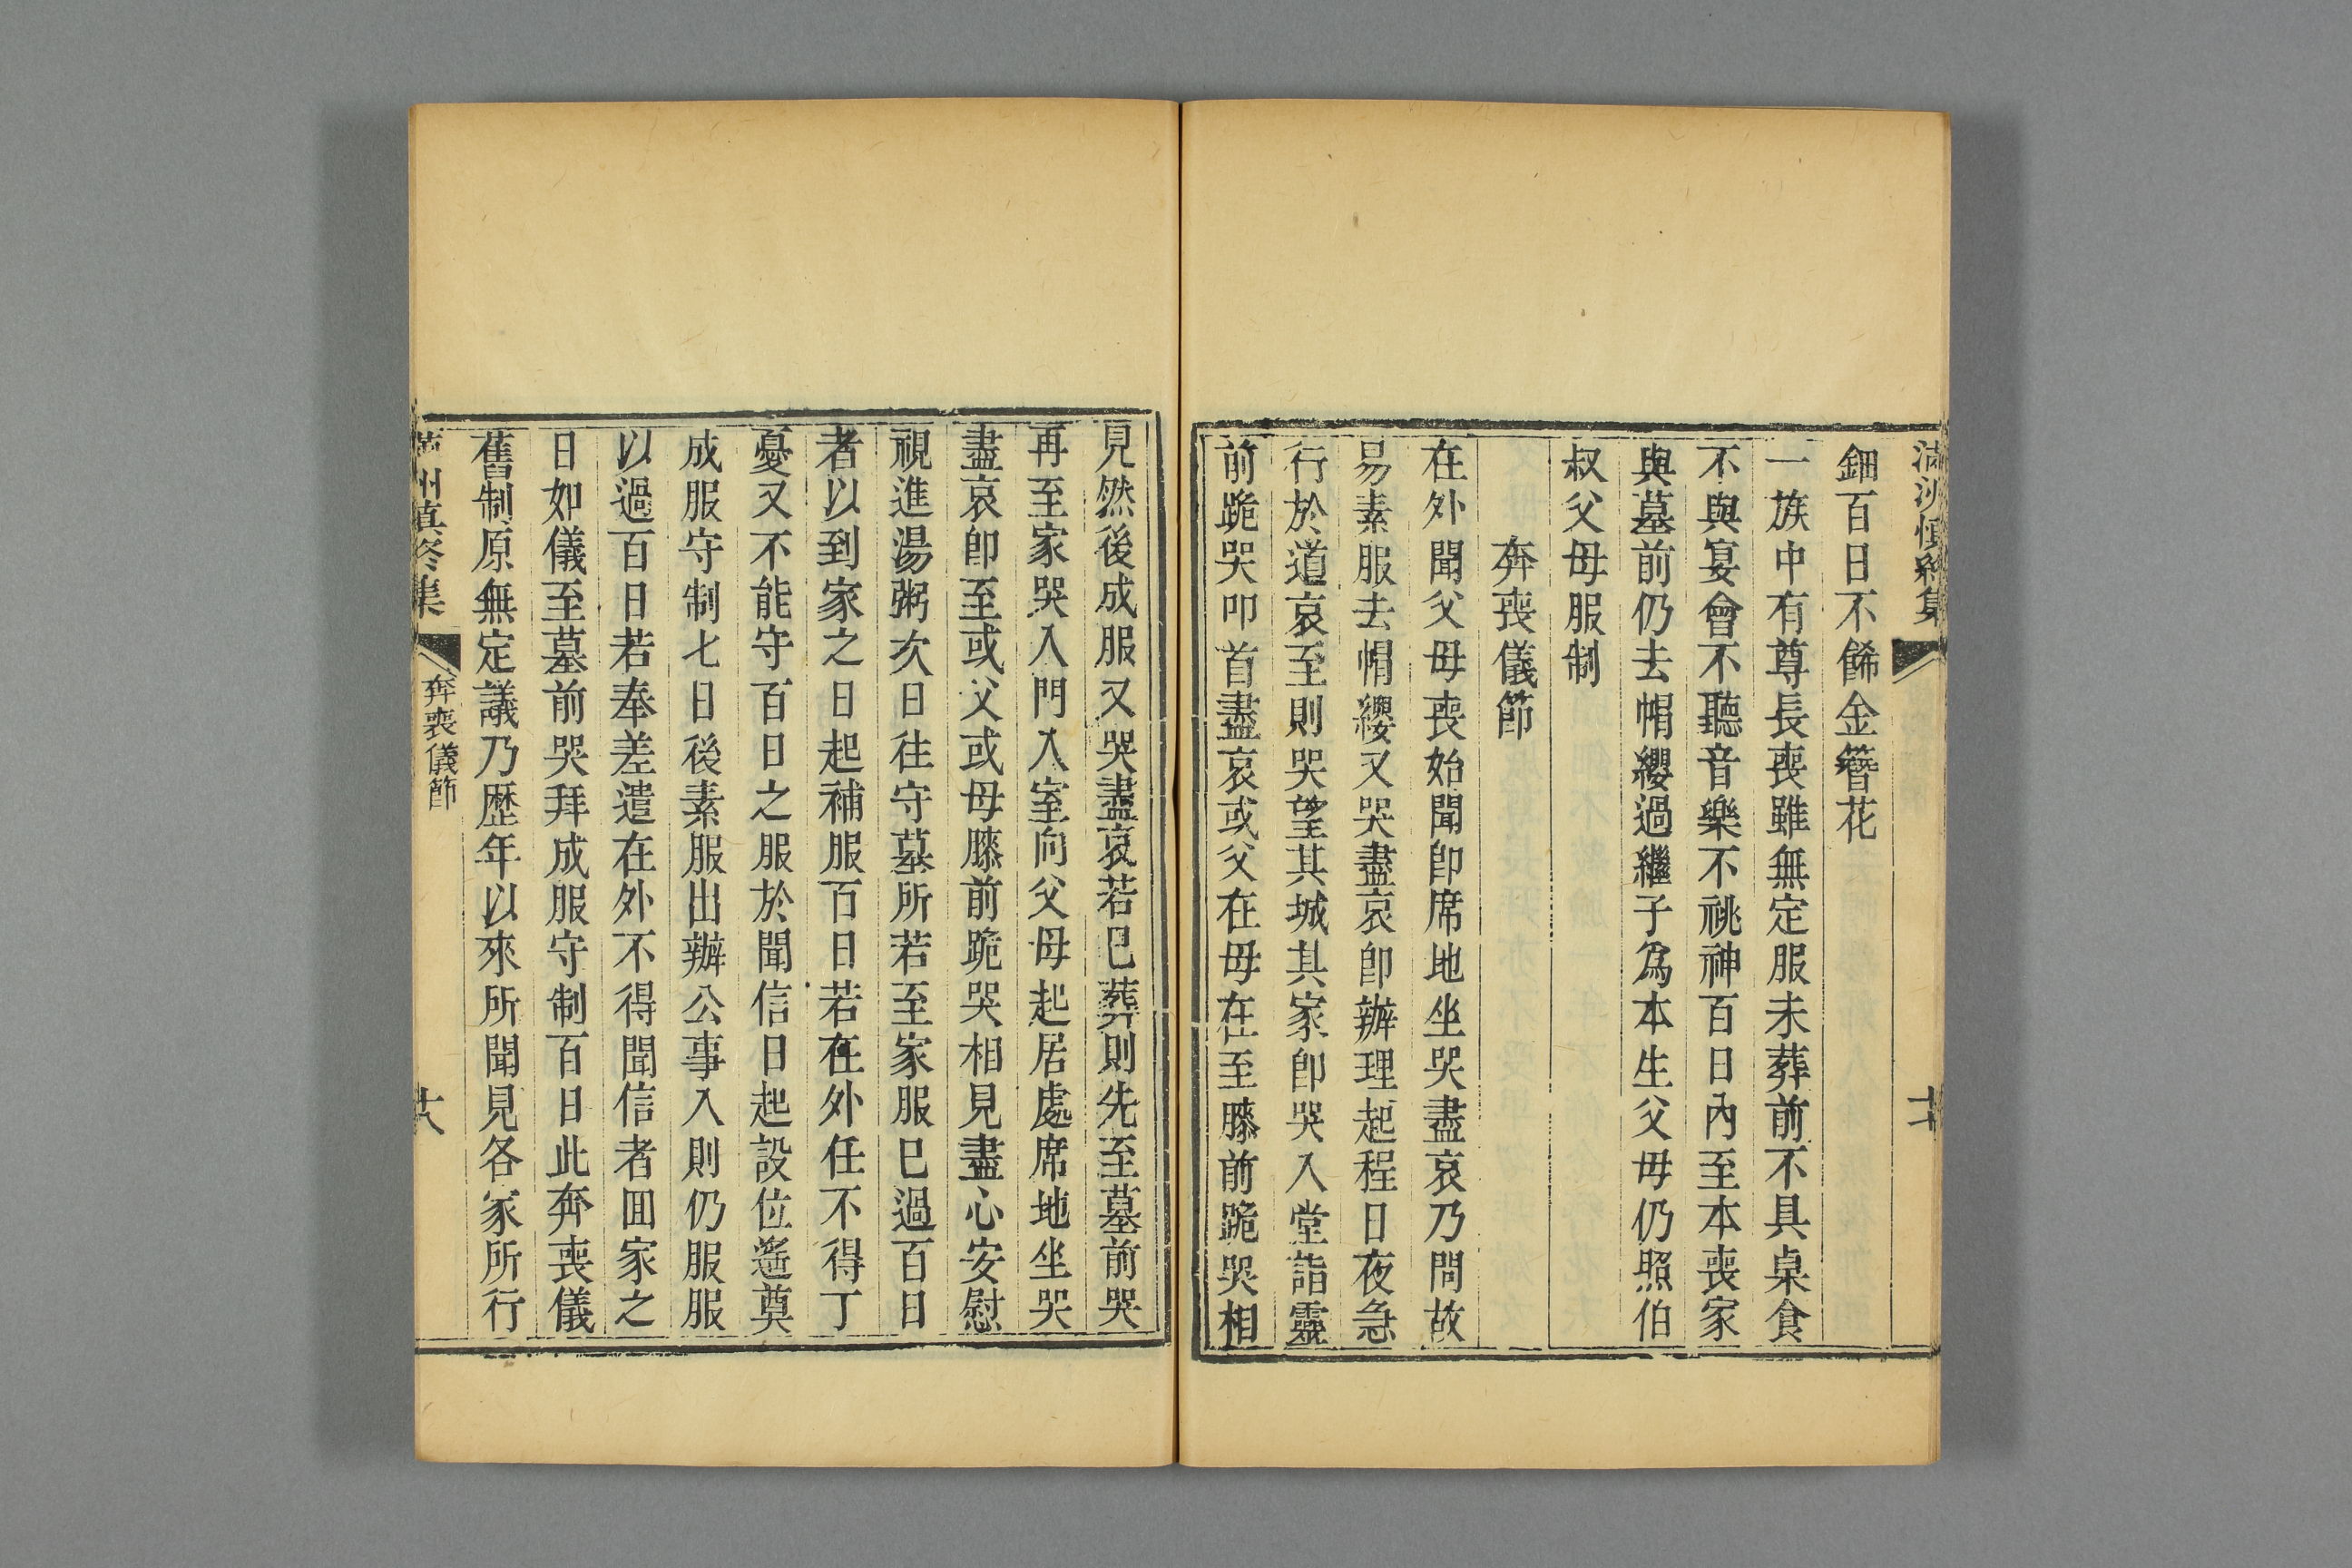 滿洲慎終集
鈿百日不餙金簪花
一族中有尊長喪雖無定服未葬前不具桌食
不與宴會不聽音樂不祧神百日內至本喪家
與墓前仍去帽纓過繼子爲本生父母仍照伯
叔父母服制
奔喪儀節
在外聞父母喪始聞卽席地坐哭盡哀乃問故
易素服去帽纓又哭盡哀卽辦理起程日夜急
行於道哀至則哭望其城其家卽哭入堂詣靈
前跪哭叩首盡哀或父在母在至膝前跪哭相
見然後成服又哭盡哀若已葬則先至墓前哭
再至家哭入門入室向父母起居處席地坐哭
盡哀卽至或父或母膝前跪哭相見盡心安慰
視進湯粥次日往守墓所若至家服已過百日
者以到家之日起補服百日若在外任不得丁
憂又不能守百日之服於聞信日起設位遙奠
成服守制七日後素服出辦公事入則仍服服
以過百日若奉差遣在外不得聞信者囬家之
日如儀至墓前哭拜成服守制百日此奔喪儀
舊制原無定議乃歷年以來所聞見各家所行
滿州慎終集 奔喪儀節 十八